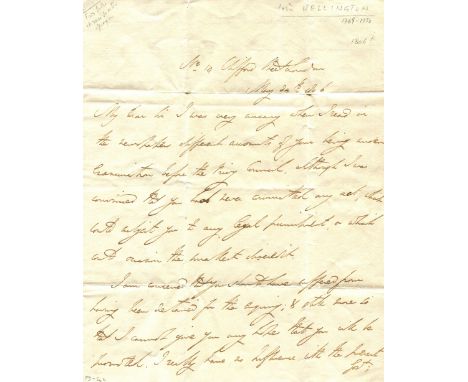 WELLINGTON
1769-1852
1806
No. 18 Clifford Street London
May 20th 1806
My dear Sir I was very uneasy when I read in
the newspapers different accounts of your being under
Examination before the Privy Council, although I was
convinced that you had never committed any act, which
could subject you to any legal punishment, or which
could occasion the smallest discredit.
I am concerned that you should have suffered from
having been detained for the enquiry; & still more so
that I cannot give you any hope that you will be
promoted. I really have no influence with the present
Govt.